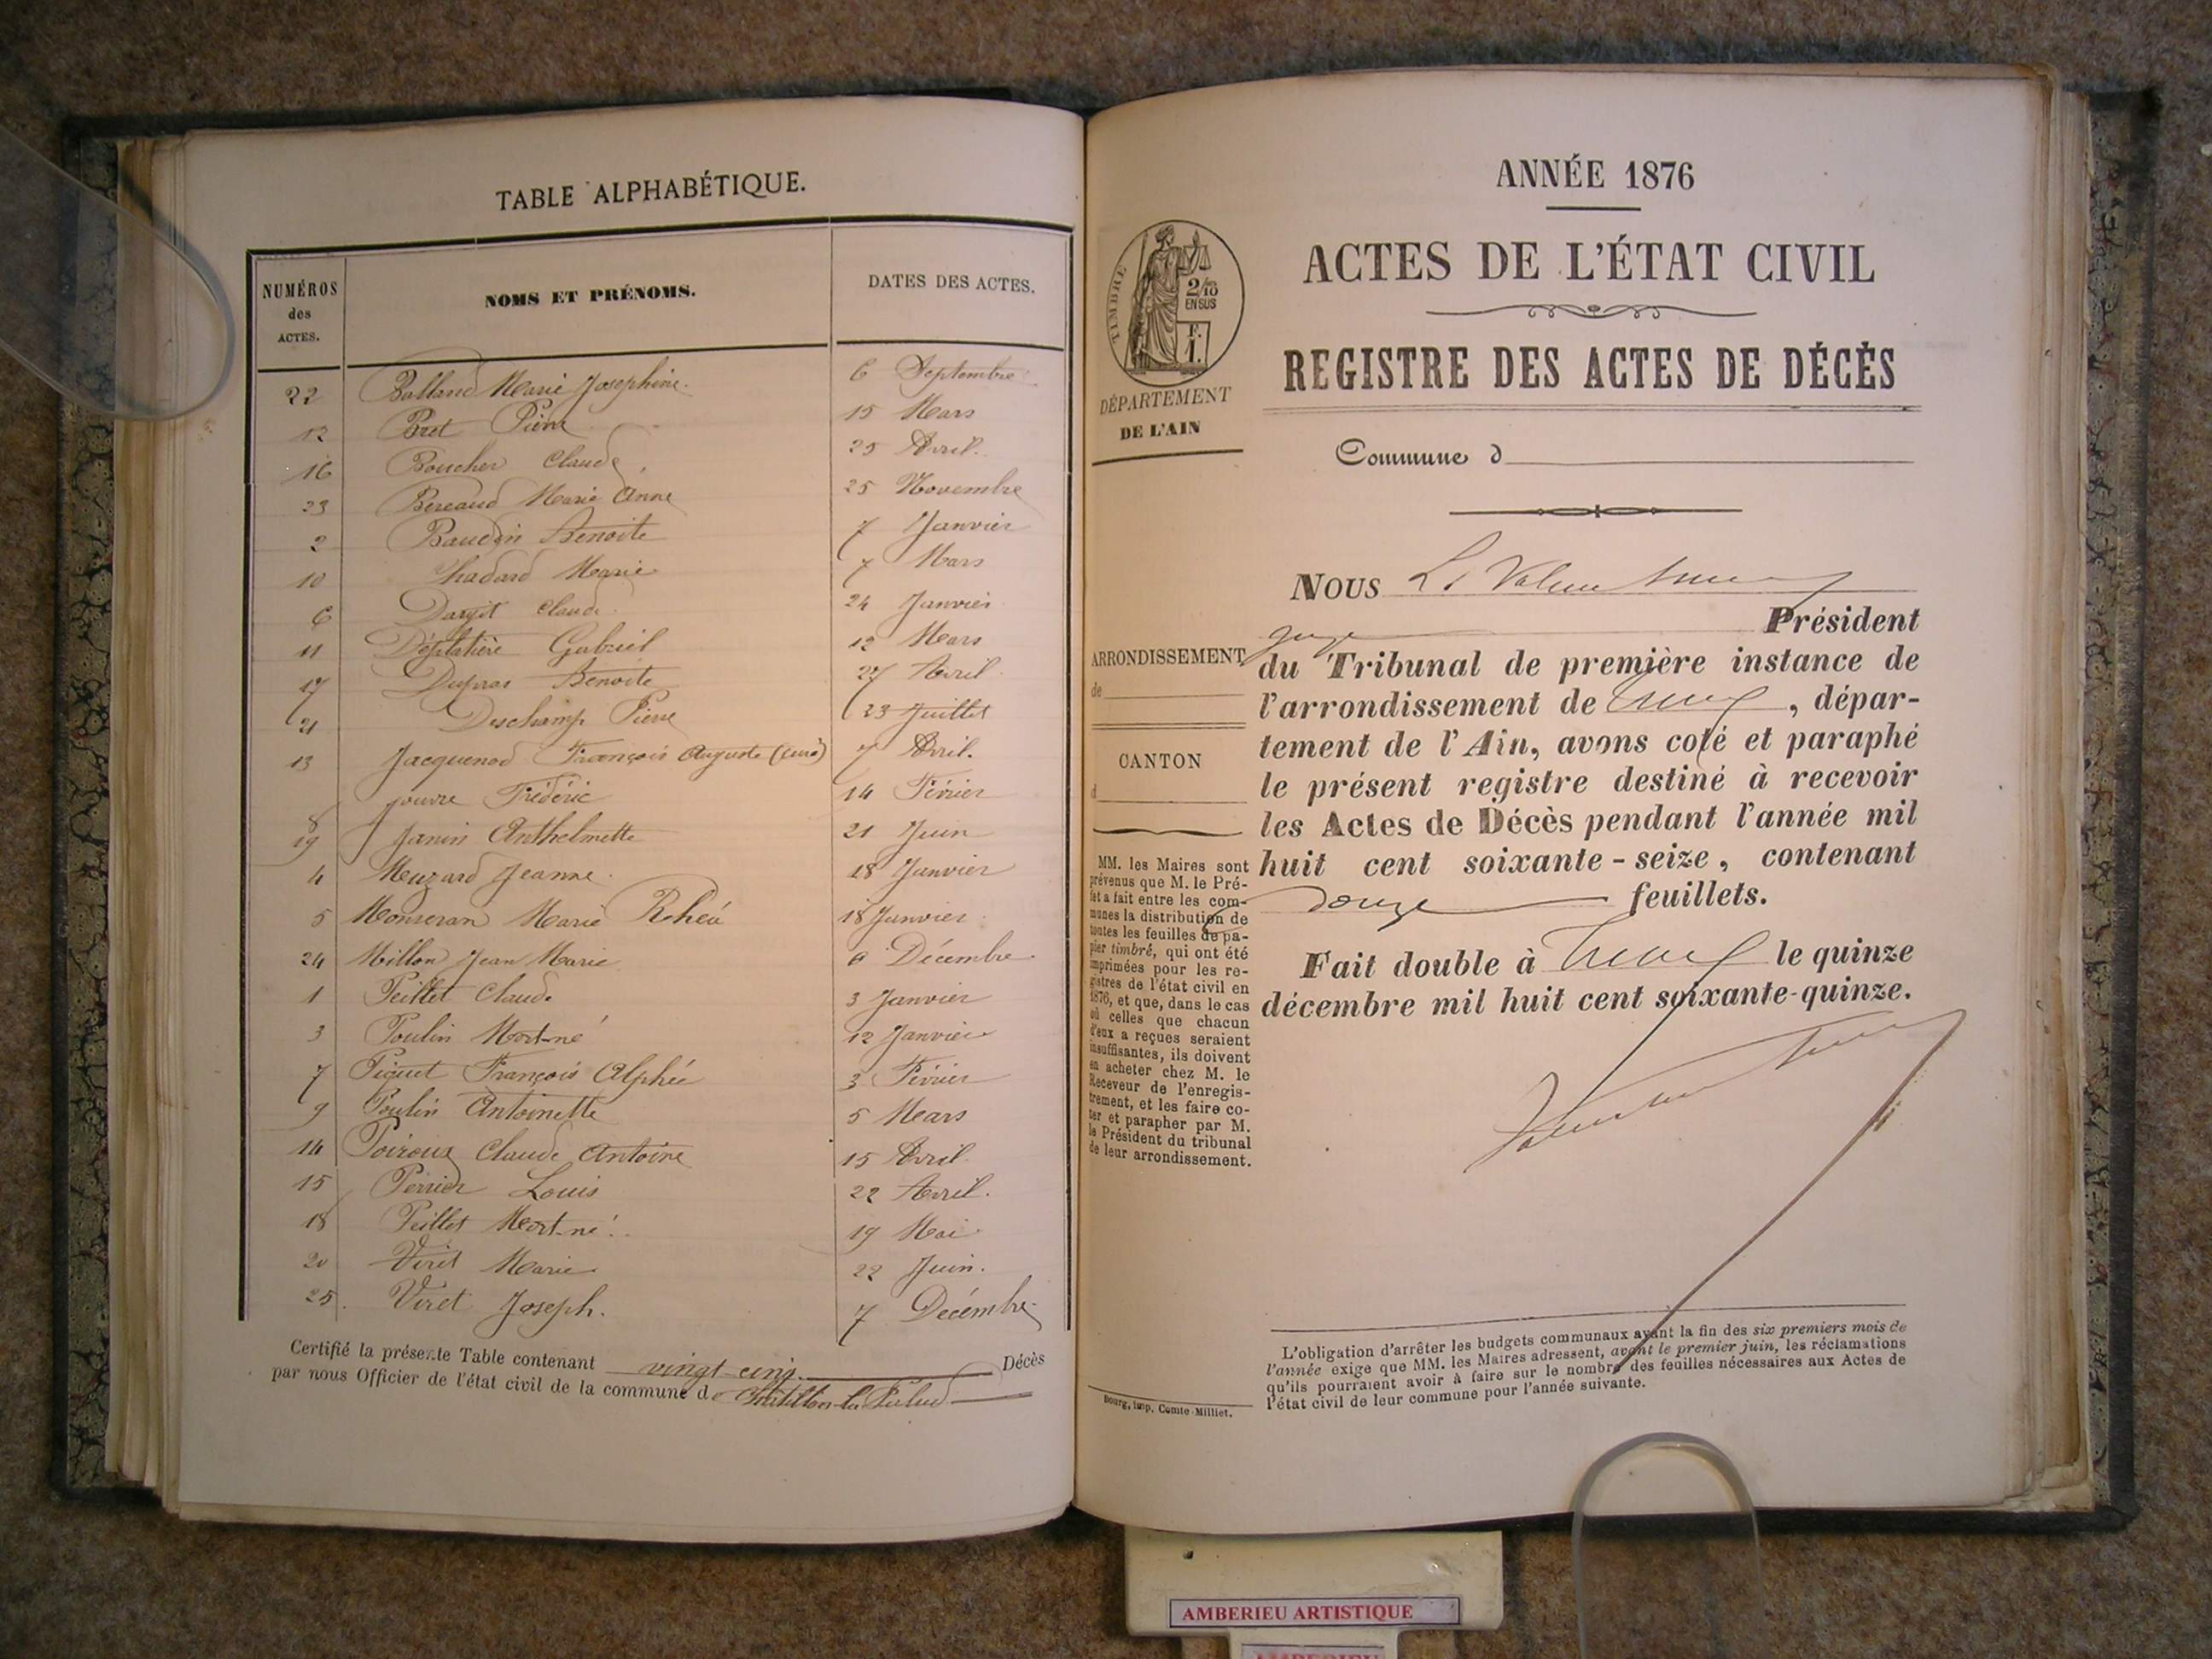 TABLE ALPHABÉTIQUE.
NUMÉROS des ACTES.
NOMS ET PRÉNOMS.
DATES DES ACTES.
22 Balland Marie Josephine. 6 Septembre
12 Bret Pierre 15 Mars
16 Boucher Claude 25 Avril.
23 Béreaud Marie Anne 25 Novembre
2 Baudin Benoite 7 Janvier
10 Chadard Marie 7 Mars
6 Claude 24 Janvier
11 Déplatière Gabriel 12 Mars
17 Dupras Benoite 27 Avril
21 Deschamp Pierre 23 Juillet
13 Jacquenod François Auguste (curé) 7 Avril.
8 Jouvre Frédéric 14 Février
19 Janin Anthelmette 21 Juin
4 Meuzard Jeanne. 18 Janvier
5 Monseran Marie 18 Janvier
24 Millon Jean Marie Décembre
1 Peillet Claude 3 Janvier
3 Poulin Mort-né 12 Janvier
7 Piquet François Alphée 3 Février
9 Poulin Antoinette 5 Mars
14 Poiroux Claude Antoine 15 Avril
15 Perrier Louis 22 Avril.
18 Peillet Mort-né. 19 Mai
20 Viret Marie 22 Juin.
25. Viret Joseph. 7 Décembre
Certifié la présente Table contenant vingt-cinq Décès
par nous Officier de l'état civil de la commune de Chatillon-la-Palud
ANNÉE 1876
ACTES DE L'ÉTAT CIVIL
REGISTRE DES ACTES DE DÉCÈS
TIMBRE
2/10
EN SUS
F.
1.
DÉPARTEMENT
DE L'AIN
Commune d
NOUS
juge Président
du Tribunal de première instance de
l'arrondissement de Trévoux, dépar-
tement de l'Ain, avons coté et paraphé
le présent registre destiné à recevoir
les Actes de Décès pendant l'année mil
huit cent soixante-seize, contenant
douze feuillets.
Fait double à Trévoux le quinze
décembre mil huit cent soixante-quinze.
ARRONDISSEMENT
de
CANTON
d
MM. les Maires sont
prévenus que M. le Pré-
fet a fait entre les com-
munes la distribution de
toutes les feuilles de pa-
pier timbré, qui ont été
imprimées pour les re-
gistres de l'état civil en
1876, et que, dans le cas
où celles que chacun
d'eux a reçues seraient
insuffisantes, ils doivent
en acheter chez M. le
Receveur de l'enregis-
trement, et les faire co-
ter et parapher par M.
le Président du tribunal
de leur arrondissement.
Bourg, imp. Comte-Milliet.
L'obligation d'arrêter les budgets communaux avant la fin des six premiers mois de
l'année exige que MM. les Maires adressent, avant le premier juin, les réclamations
qu'ils pourraient avoir à faire sur le nombre des feuilles nécessaires aux Actes de
l'état civil de leur commune pour l'année suivante.
AMBERIEU ARTISTIQUE
AMBERIEU